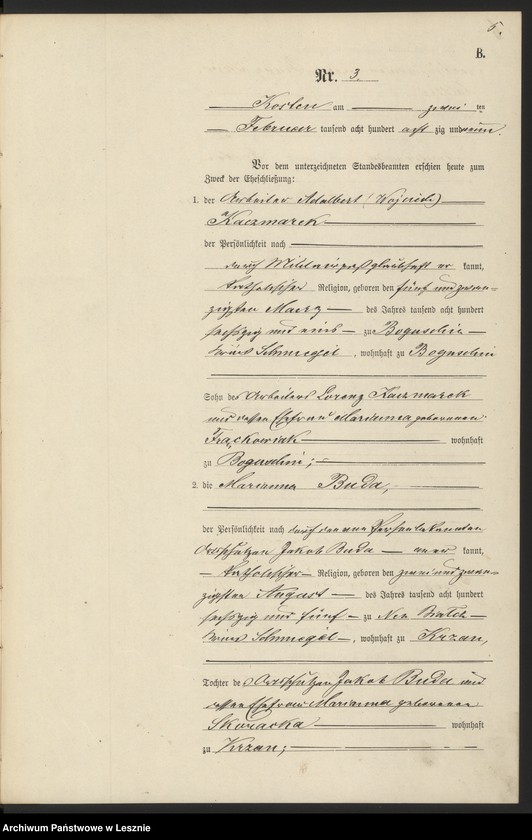 5.
B.
Nr. 3.
Kosten am zwei ten
Februar tausend acht hundert acht zig und neun.
Vor dem unterzeichneten Standesbeamten erschien heute zum
Zweck der Eheschließung:
1. der Arbeiter Adalbert (Wojciech)
Kaczmarek
der Persönlichkeit nach
durch Militairpaß glaubhaft er kannt,
katholischer Religion, geboren den fünf und zwan-
zigsten Maerz des Jahres tausend acht hundert
sechszig und eins zu Boguschin
Kreis Schmiegel, wohnhaft zu Boguschin
Sohn des Arbeiters Lorenz Kaczmarek
und dessen Ehefrau Marianna geborenen
Frąckowiak wohnhaft
zu Boguschin;
2. die Marianna Buda,
der Persönlichkeit nach durch den von Person bekannten
Jakob Buda aner kannt,
katholischer Religion, geboren den zwei und zwan-
zigsten August des Jahres tausend acht hundert
sechszig und fünf zu Neu
Kreis Schmiegel, wohnhaft zu Krzan,
Tochter des Jakob Buda und
dessen Ehefrau Marianna geborenen
wohnhaft
zu Krzan;
Archiwum Państwowe w Lesznie